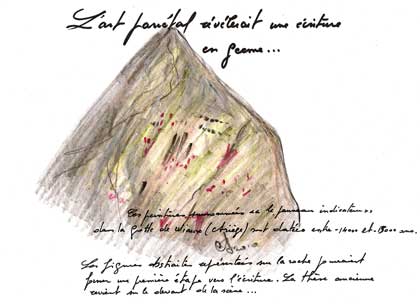 L'art pariétal révèlerait une écriture
en germe...
Les peintures surnommées « le panneau indicateur »
dans la grotte de Niaux (Ariège) sont datées entre -14000 et
Les figures abstraites représentées sur la roche pourraient
former un première étape vers l'écriture. La thèse ancienne
revient sur le devant de la scène...